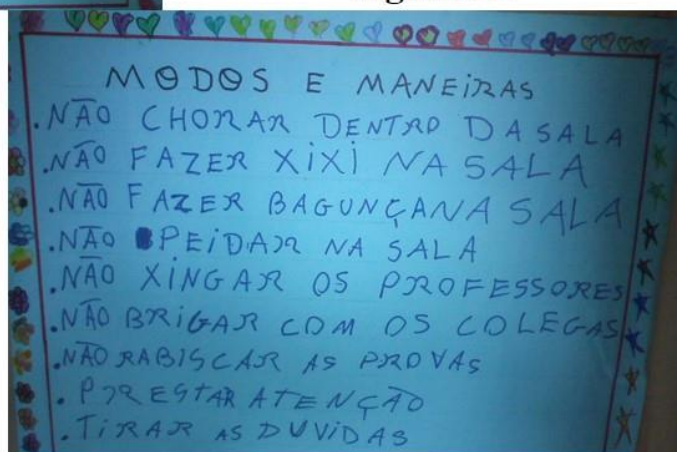 MODOS E MANEIRAS
.NÃO CHORAR DENTRO DA SALA
.NÃO FAZER XIXI NA SALA
.NÃO FAZER BAGUNÇA NA SALA
.NÃO PEIDAR NA SALA
.NÃO XINGAR OS PROFESSORES
.NÃO BRIGAR COM OS COLEGAS
.NÃO RABISCAR AS PROVAS
.PRESTAR ATENÇÃO
.TIRAR AS DUVIDAS